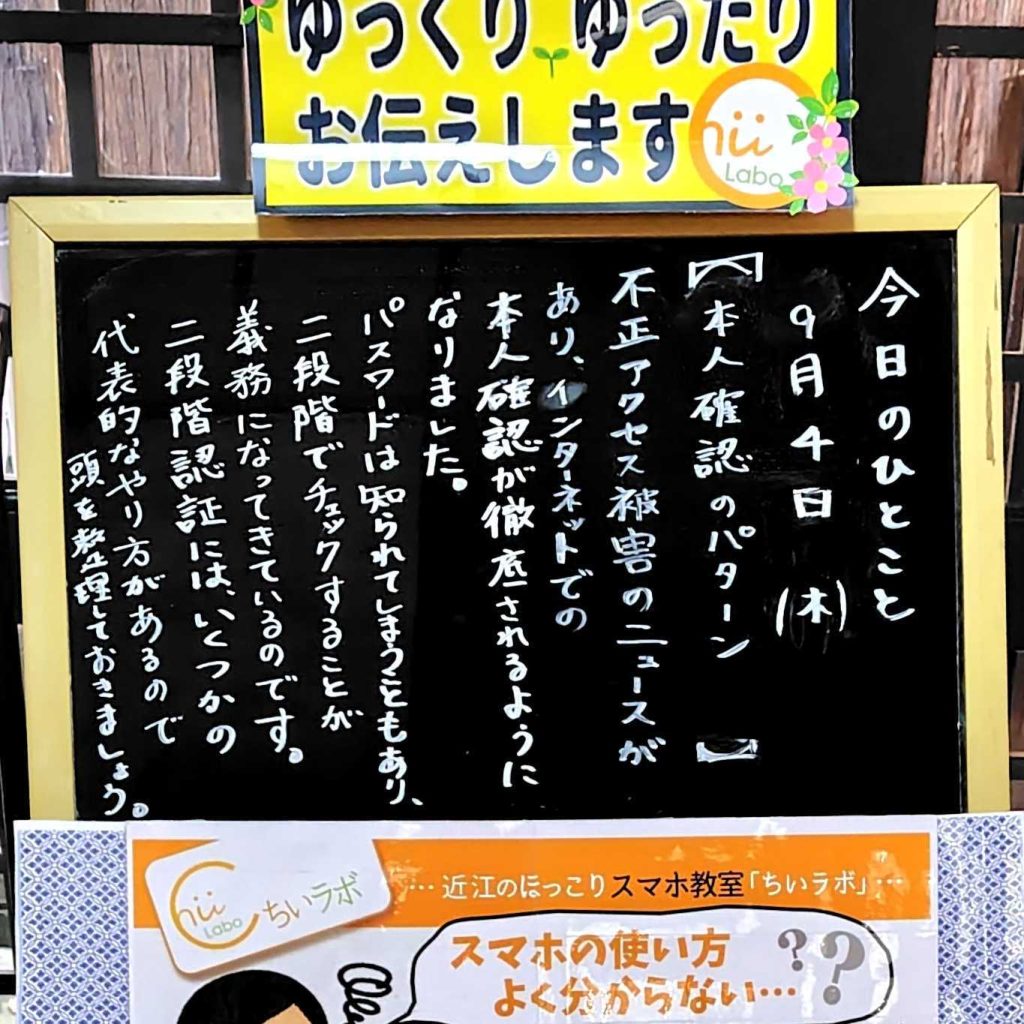 ゆっくり ゆったり
お伝えします
Chii
Labo
今日のひとこと
9月4日(木)
【本人確認のパターン】
不正アクセス被害のニュースが
あり、インターネットでの
本人確認が徹底されるように
なりました。
パスワードは知られてしまうこともあり、
二段階でチェックすることが
義務になってきているのです。
二段階認証には、いくつかの
代表的なやり方があるので
頭を整理しておきましょう。
Chii
Labo
ちいラボ
…近江のほっこりスマホ教室「ちいラボ」…
スマホの使い方
よく分からない…
???